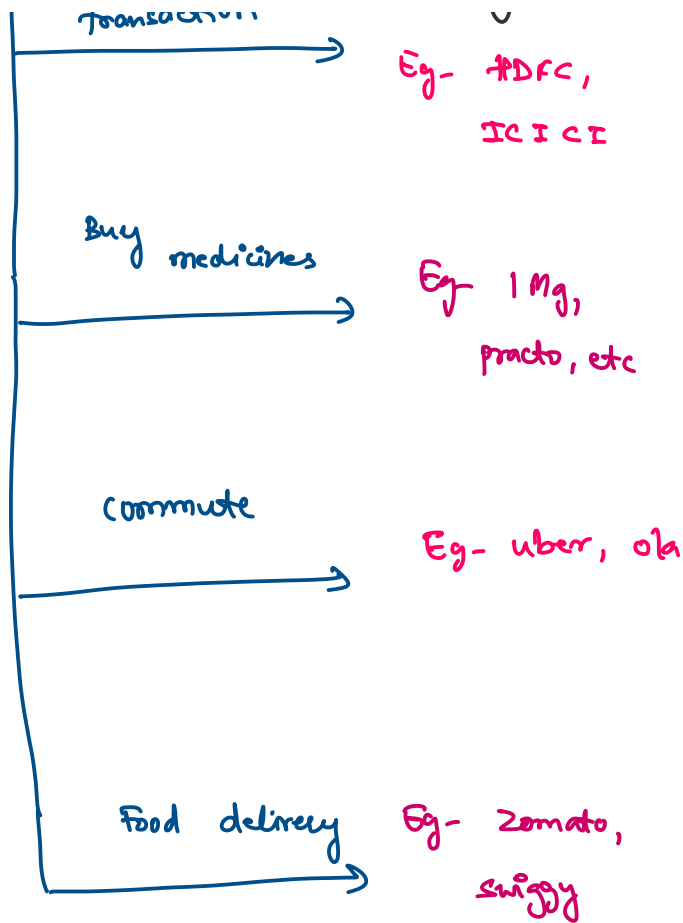 Transaction
Eg- HDFC,
ICICI
Buy medicines
Eg- 1Mg,
practo, etc
Commute
Eg- uber, ola
Food delivery
Eg- Zomato,
swiggy